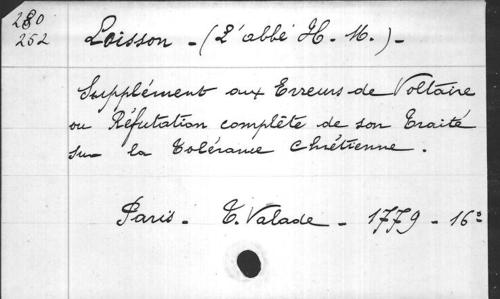 280
252
Loisson - (L'abbé H. M.) -
Supplément aux Erreurs de Voltaire
ou Réfutation complète de son Traité
sur la Tolérance Chrétienne.
Paris - T. Valade - 1779 - 16º